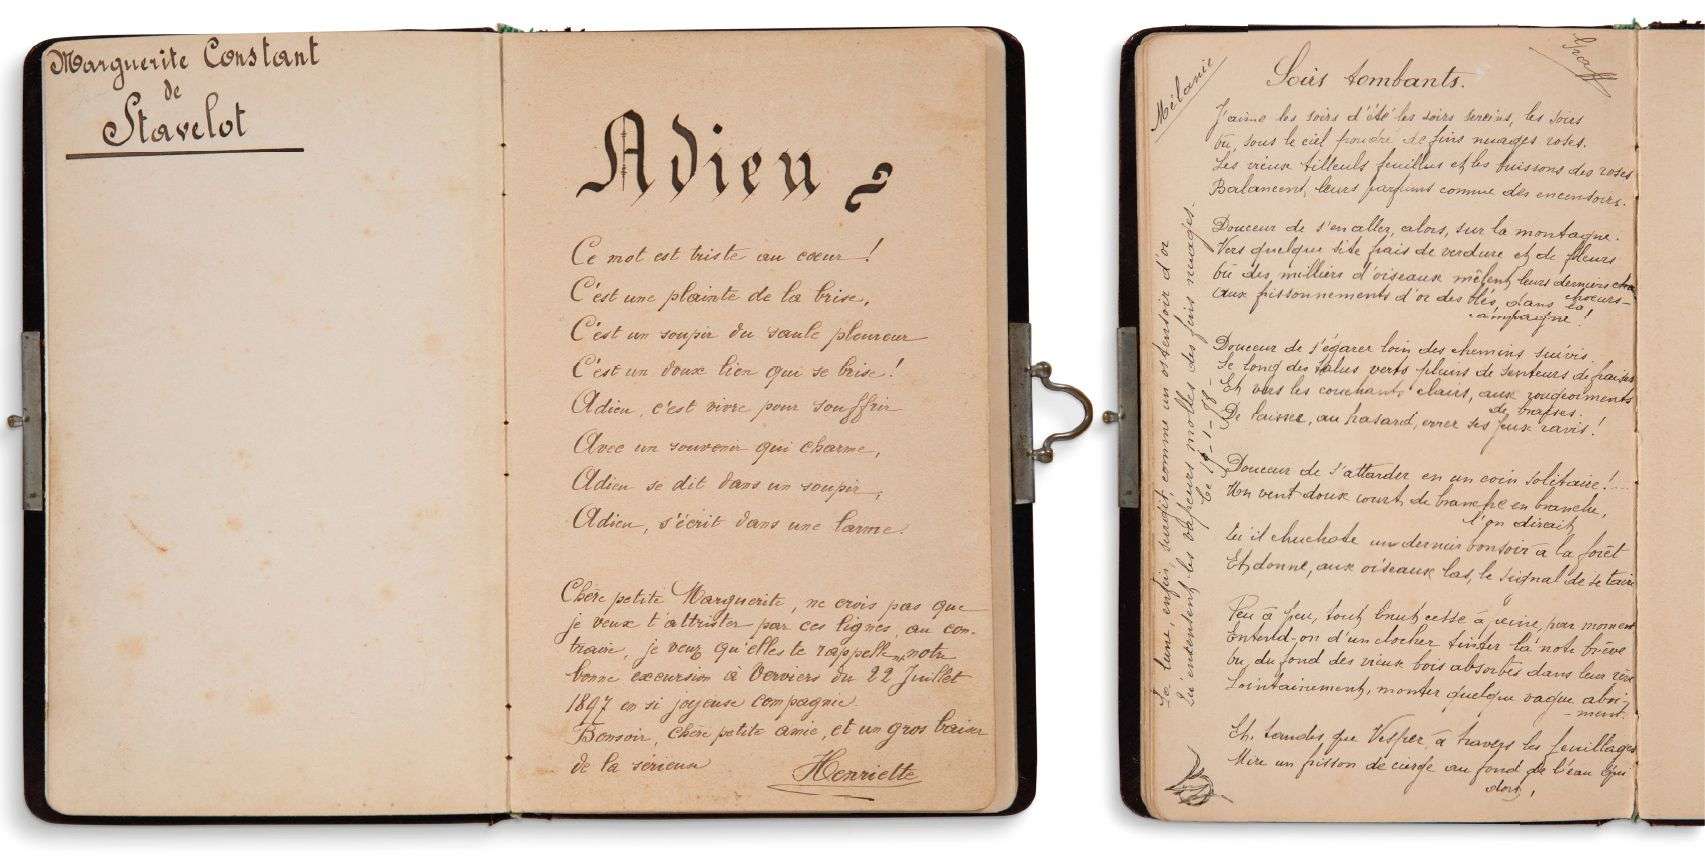 Marguerite Constant
de
Stavelot
Adieu
Ce mot est triste au cœur !
C'est une plainte de la brise,
C'est un soupir du saule pleureur
C'est un doux lien qui se brise !
Adieu, c'est vivre pour souffrir
Avec un souvenir qui charme,
Adieu se dit dans un soupir,
Adieu, s'écrit dans une larme.
Chère petite Marguerite, ne crois pas que
je veux t'attrister par ces lignes, au con-
traire, je veux qu'elles te rappellent notre
bonne excursion à Verviers du 22 Juillet
1897 en si joyeuse compagnie.
Bonsoir, chère petite amie, et un gros baiser
de la sérieuse
Henriette
Mélanie
Graff
Soirs tombants.
J'aime les soirs d'été les soirs sereins, les soirs
Où, sous le ciel poudré de fins nuages roses.
Les vieux tilleuls feuillus et les buissons des roses
Balancent, leurs parfums comme des encensoirs.
Douceur de s'en aller, alors, sur la montagne.
Vers quelque site frais de verdure et de fleurs
Où des milliers d'oiseaux mêlent leurs derniers
chœurs-
Aux frissonnements d'or des blés, dans la
campagne !
Douceur de s'égarer loin des chemins suivis.
Le long des talus verts pleins de senteurs de fraises
Et vers les couchants clairs, aux rougeoiments
de braises.
De laisser, au hasard, errer ses yeux ravis !
Douceur de s'attarder en un coin solitaire !
Un vent doux court, de branche en branche,
l'on dirait
Qu'il chuchote un dernier bonsoir à la forêt
Et, donne, aux oiseaux las, le signal de se taire
Peu à peu, tout bruit cesse à peine, par moment
Entend-on d'un clocher tinter la note brève
Ou du fond des vieux bois absorbés dans leur rêve
Lointainement, monter quelque vague aboi-
-ment.
Et, tandis que Vesper, à travers les feuillages
Mire un frisson de cierge au fond de l'eau qui
dort,
La lune, enfin, surgit, comme un ostensoir d'or
Qu'encensent les vapeurs molles des fins nuages.
Ce 17-1-98-